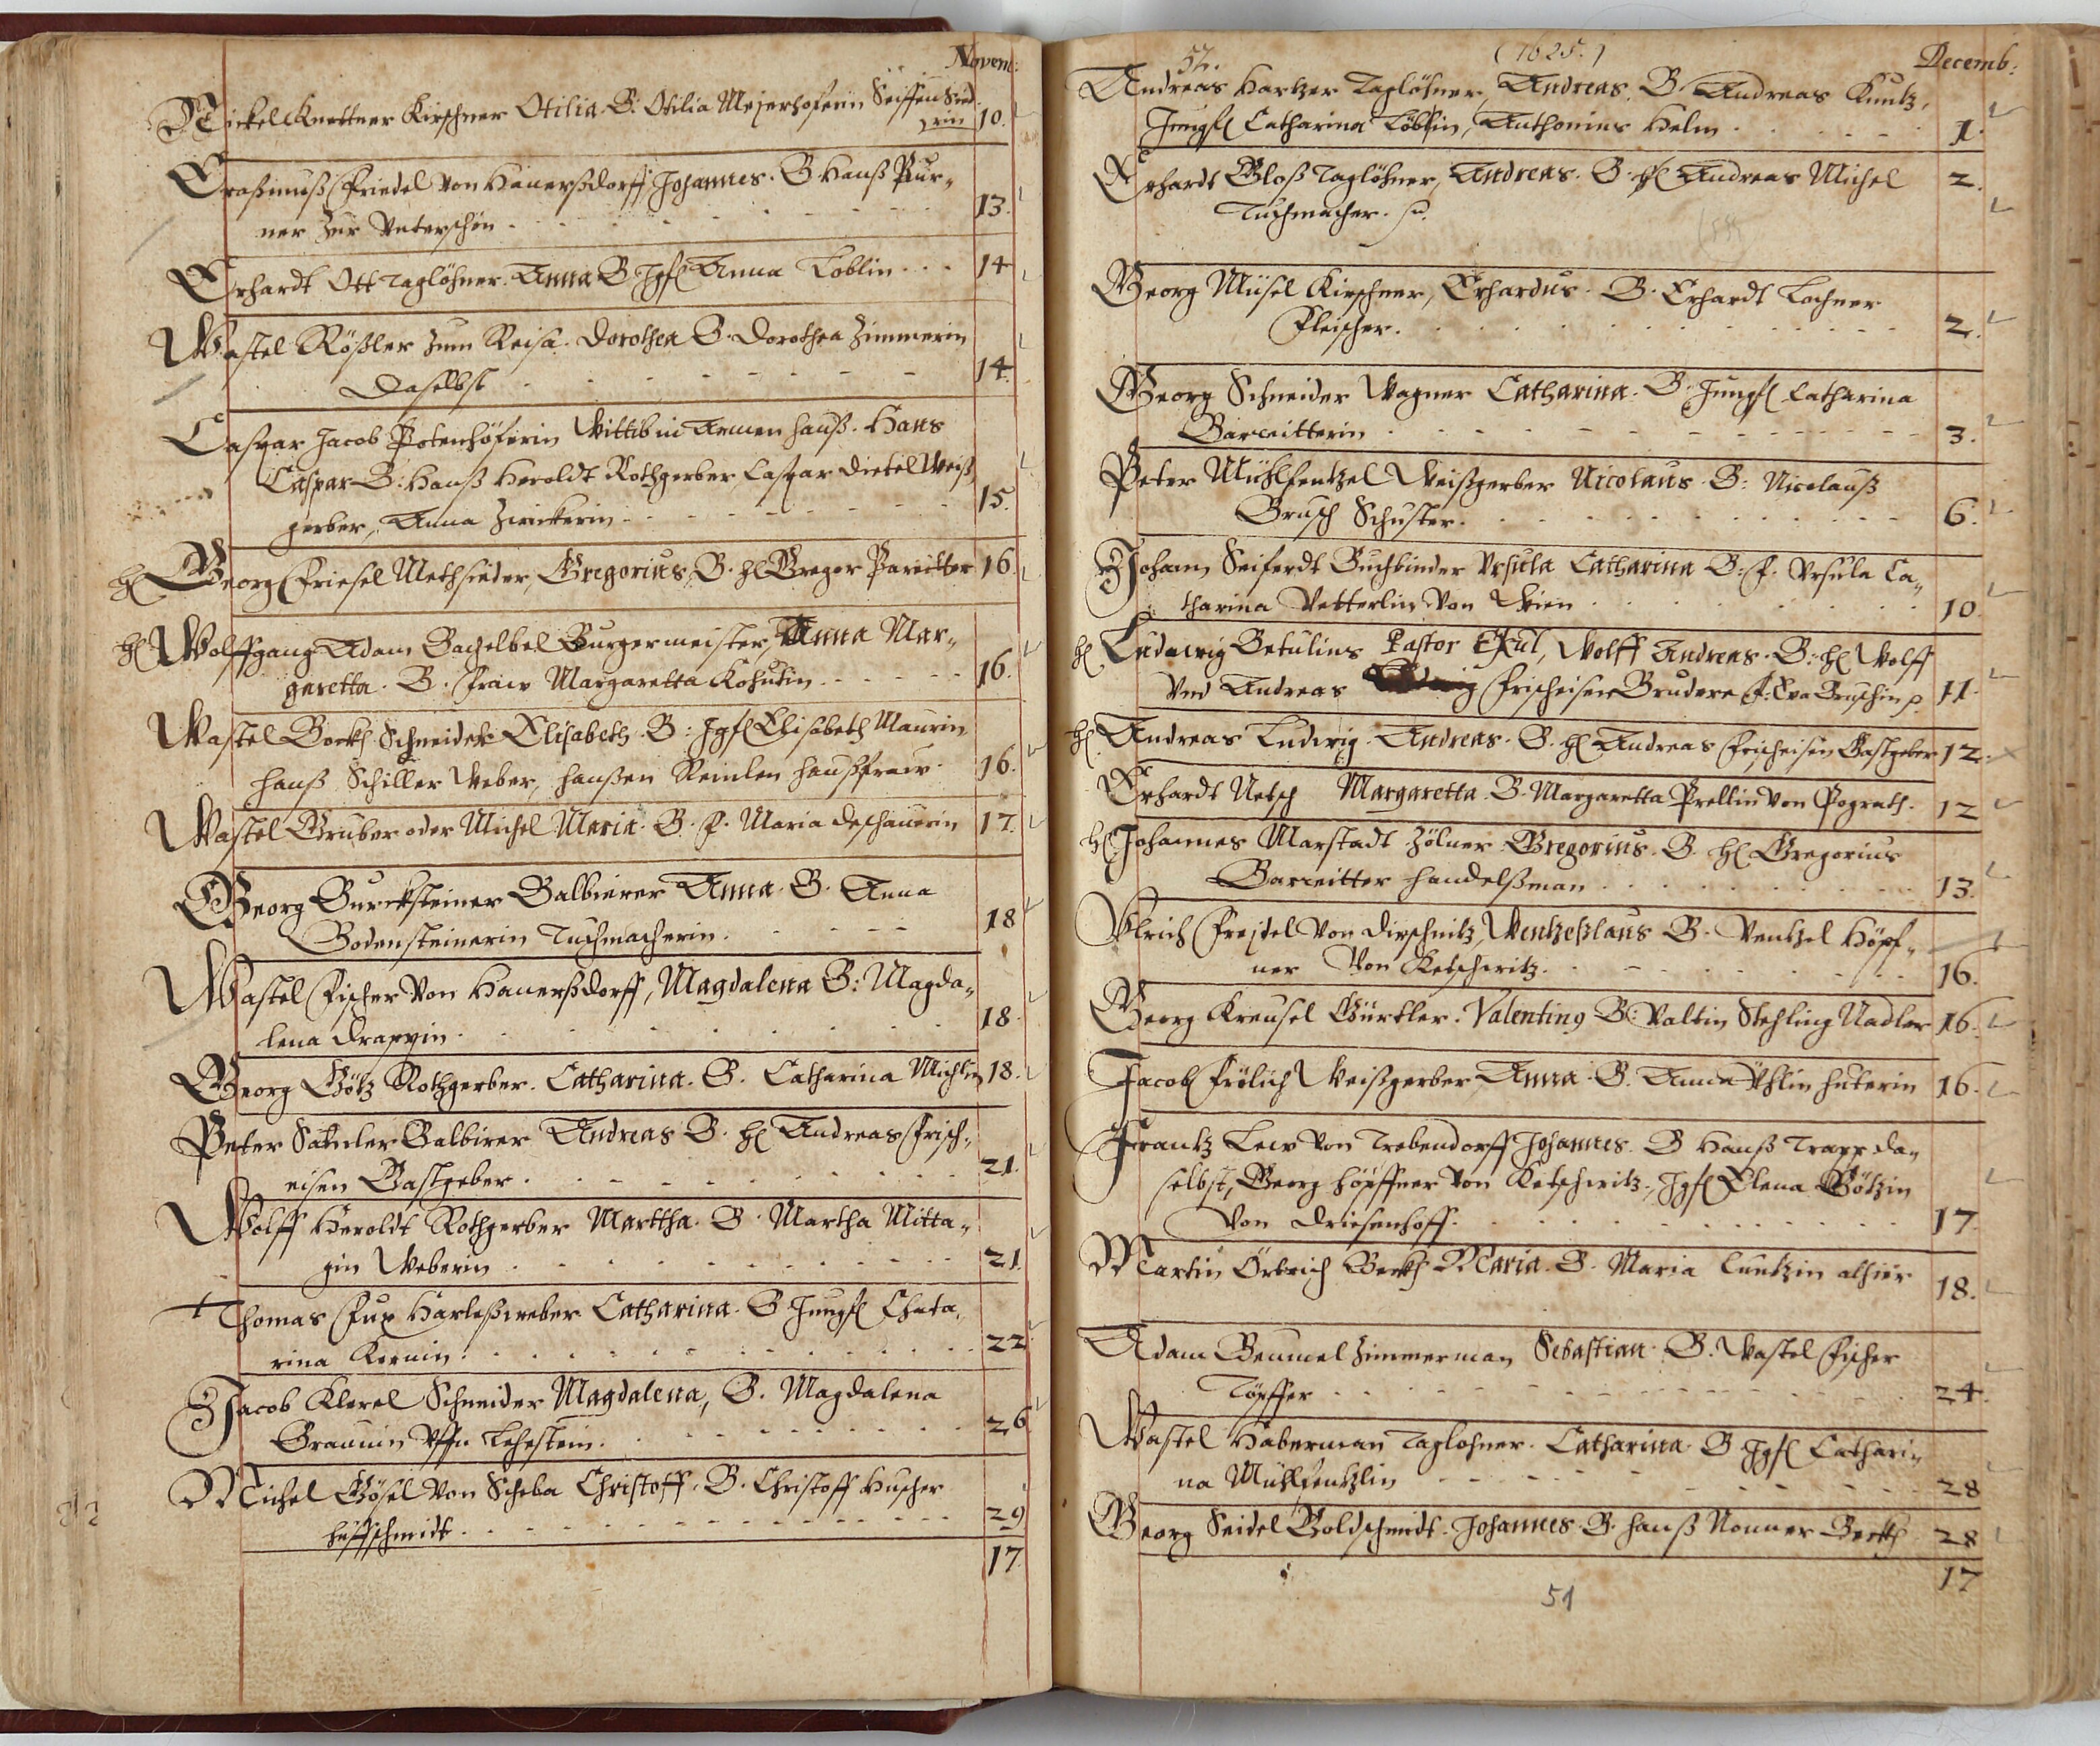 Novem:
Nickel Knettner Kirschner Otilia. G: Otilia Mejerhoferin Seiffensied-
rin 10.
Eraßimuß Friedel von Hanerßdorff Johannes. G. Hanß Pur-
ner Zur Unterschön 13.
Erhardt Ott Taglöhner. Anna G Jgfl Anna Loblin 14
Wastel Rößler zum Reisa. Dorothea G. Dorothea Zimmerin
Daselbst 14.
Caspar Jacob Potenhöferin Wittib im Armen hauß. Hans
Caspar G: Hanß Heroldt Rothgerber Caspar Dietel Weiß
gerber, Anna Zwickerin 15.
Georg Friesel Methsieder, Gregorius, G. hl Greger Pareitter 16.
Wolffgang Adam Bachelbel Burgermeister, Anna Mar-
garetta. G. Fraw Margaretta Kohutin 16.
Wastel Beckh Schneider Elisabeth. G: Jgfl Elisabeth Maurin
hanß Schiller Weber, hanßen Reinlen haußfraw 16.
Wastel Gruber oder Michel Maria. G. F. Maria Deschauerin 17.
Georg Burcksteiner Balbierer Anna. G. Anna
Bodensteinerin Tuchmacherin 18
Wastel Fischer Von Hanerßdorff, Magdalena G: Magda-
lena Drappin 18.
Georg Götz Rothgerber. Catharina. G. Catharina Michlin 18.
Peter Balbirer Andreas G. hl Andreas Frisch-
eisen Gastgeber 21.
Wolff Heroldt Rothgerber Marttha. G. Martha Mitta-
gin Weberin 21.
Thomas Fux Harleßweber Catharina. G Jungfl Chata-
rina Kernin 22
Jacob Klerel Schneider Magdalena, G. Magdalena
Braunin Uffn Lehestein 26
Michel Gösel Von Scheba Christoff. G. Christoff Huscher
huffschmidt 29
17
52. (1625.) Decemb:
Andreas Hartzer Taglöhner, Andreas. G. Andreas Kuntz,
Jungfl Catharina Löblin, Anthonius Helm 1.
Erhardt Gloß Taglöhner, Andreas. G. hl Andreas Michel 2.
Tuchmacher.
Georg Müsel Kirschner, Erhardus. G. Erhardt Lochner
Fleischer 2.
Georg Schneider Wagner Catharina. G. Jungfl Catharina
Bareitterin 3.
Peter Mühlfentzel Weißgerber Nicolaus. G: Nicolauß
Brusch Schuster 6.
Johann Seiferdt Buchbinder Ursula Catharina G: F. Ursula Ca-
tharina Vetterlin Von Wien 10.
Ludwig Betulius Pastor Exul, Wolff Andreas. G: hl Wolff
Vnd Andreas Frischeisen Brudere F. Eva Bruschin 11.
Andreas Ludwig. Andreas. G. hl Andreas Frischeisen Gastgeber 12.
Erhardt Netsch Margaretta. G. Margaretta Prellin von Pograth. 12
Johannes Marstadt Zölner Gregorius. G. hl Gregorius
Bareitter handelßman 13.
Ulrich Frejtel Von Dirschnitz, Wentzeßlaus G. Wentzel Höpf-
ner Von Ketschwitz 16.
Georg Kreusel Gürtler. Valentinus G: Valtin Stehling Nadler 16.
Jacob Frölich Weißgerber Anna. G. Anna Uhlin huterin 16.
Frantz Lew Von Trebendorff Johannes. G Hanß Trapp da-
selbst, Georg höpffner Von Ketschwitz, Jgfl Elena Götzin
Von Driesenhoff 17.
Martin Örtwich Beckh Maria. G. Maria Cuntzin alhier 18.
Adam Beumel Zimmerman Sebastian. G. Wastel Fischer
Töpffer 24.
Wastel Haberman Taglohner. Catharina. G. Jgfl Cathari-
na Mühlfentzlin 28
Georg Seidel Goldschmidt. Johannes. G. hanß Nonner Beckh 28
17
51